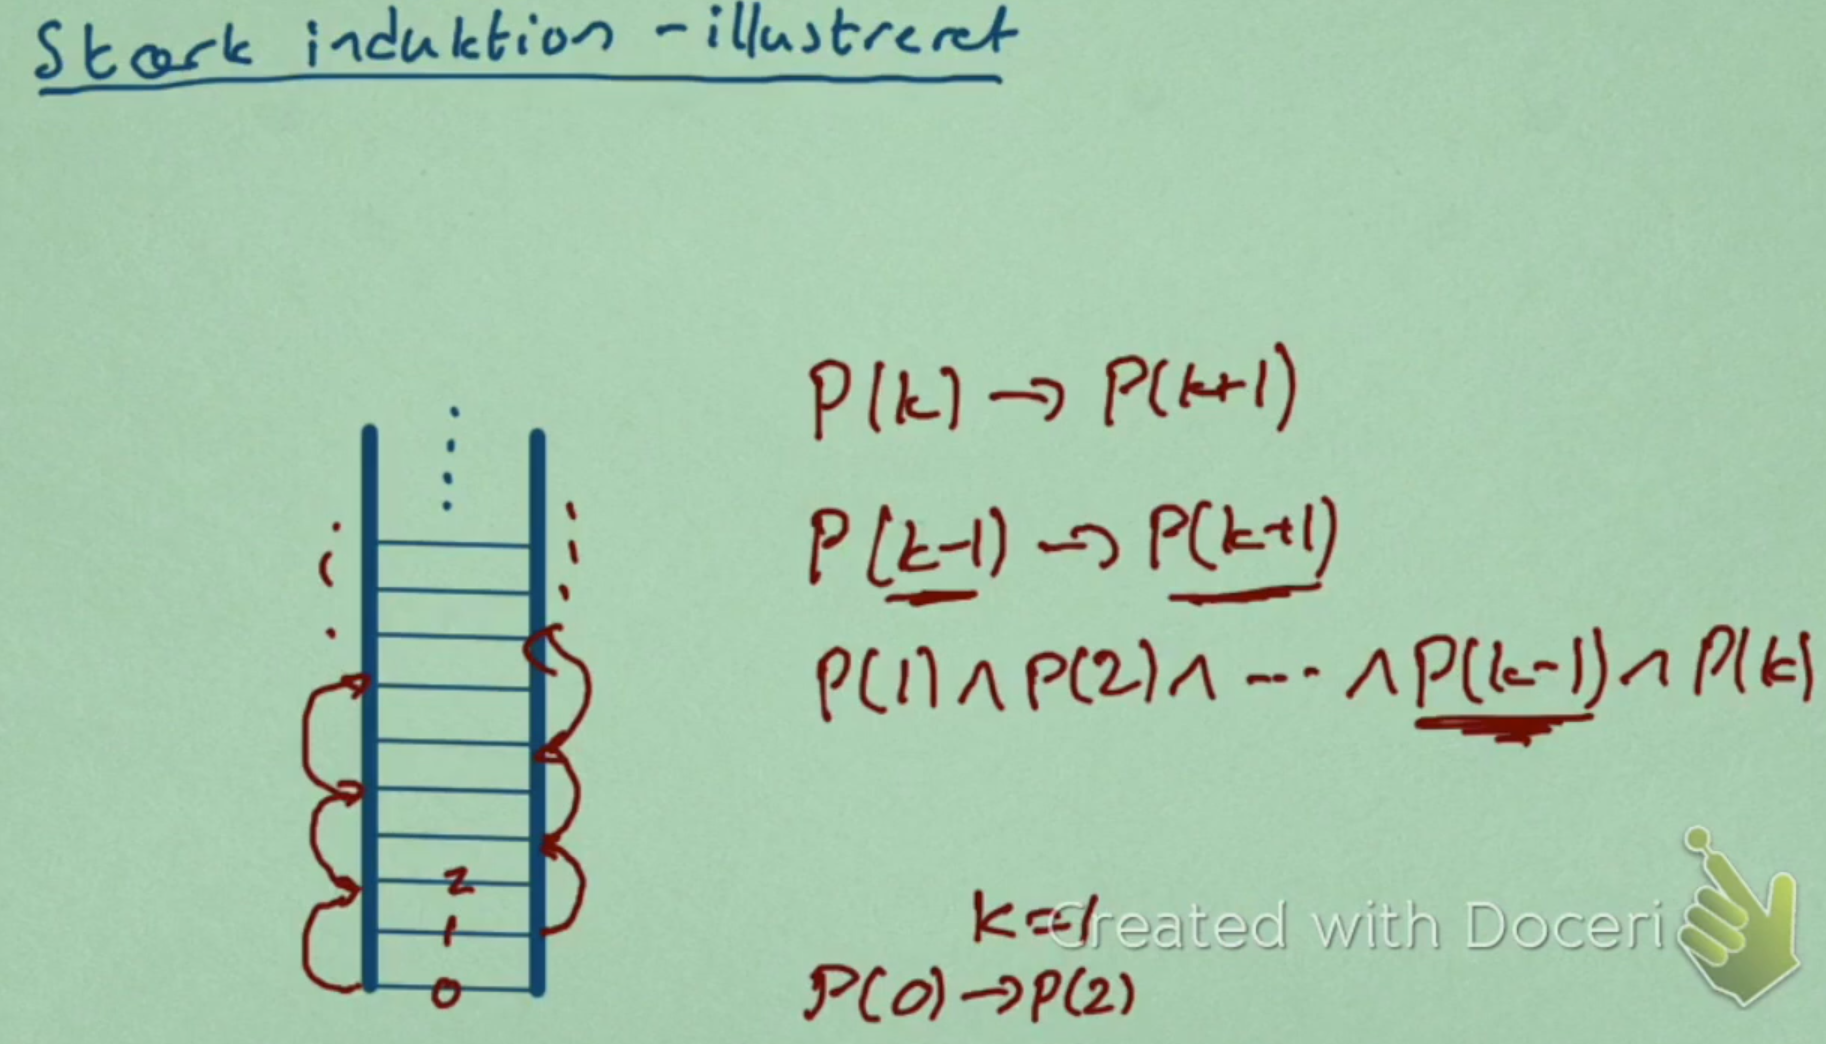 Stærk induktion - illustreret
P(k) → P(k+1)
P(k-1) → P(k+1)
P(1) ∧ P(2) ∧ ... ∧ P(k-1) ∧ P(k)
2
1
0
k=1
Created with Doceri
P(0) → P(2)